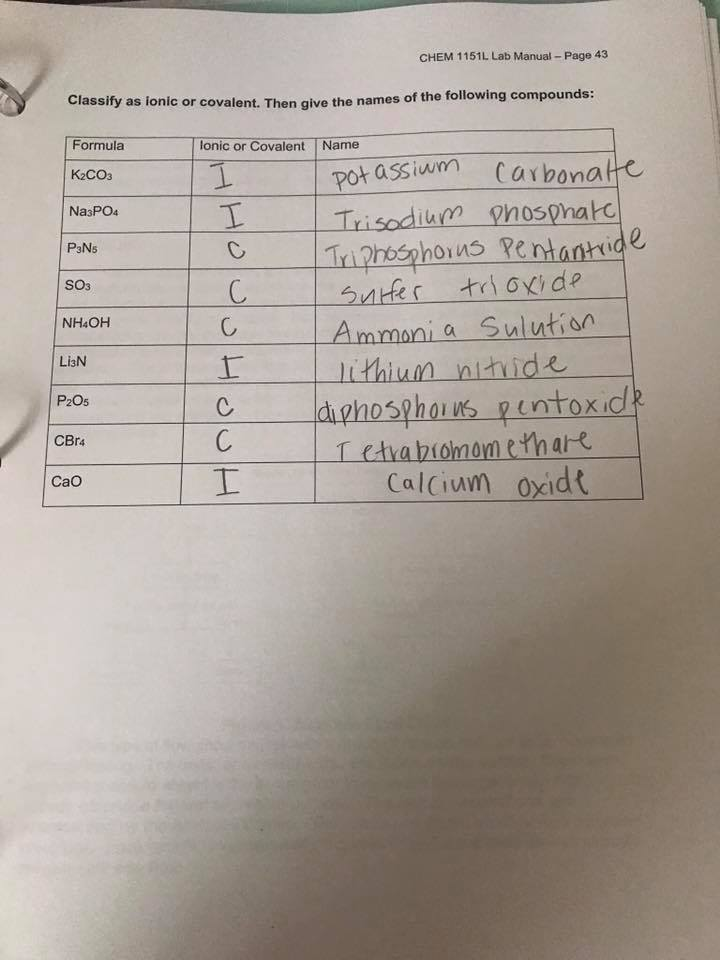 CHEM 1151L Lab Manual – Page 43
Classify as ionic or covalent. Then give the names of the following compounds:
Formula Ionic or Covalent Name
K2CO3 I potassium Carbonate
Na3PO4 I Trisodium phosphate
P3N5 C Triphosphorus Pentantride
SO3 C Sulfer trioxide
NH4OH C Ammonia Sulution
Li3N I lithium nitride
P2O5 C diphosphorus pentoxide
CBr4 C Tetrabromomethane
CaO I Calcium oxide